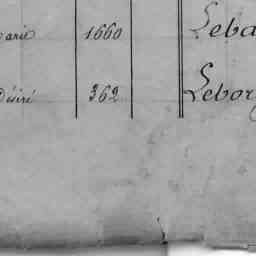 arie 1660 Leba
Désiré 362 Lebor